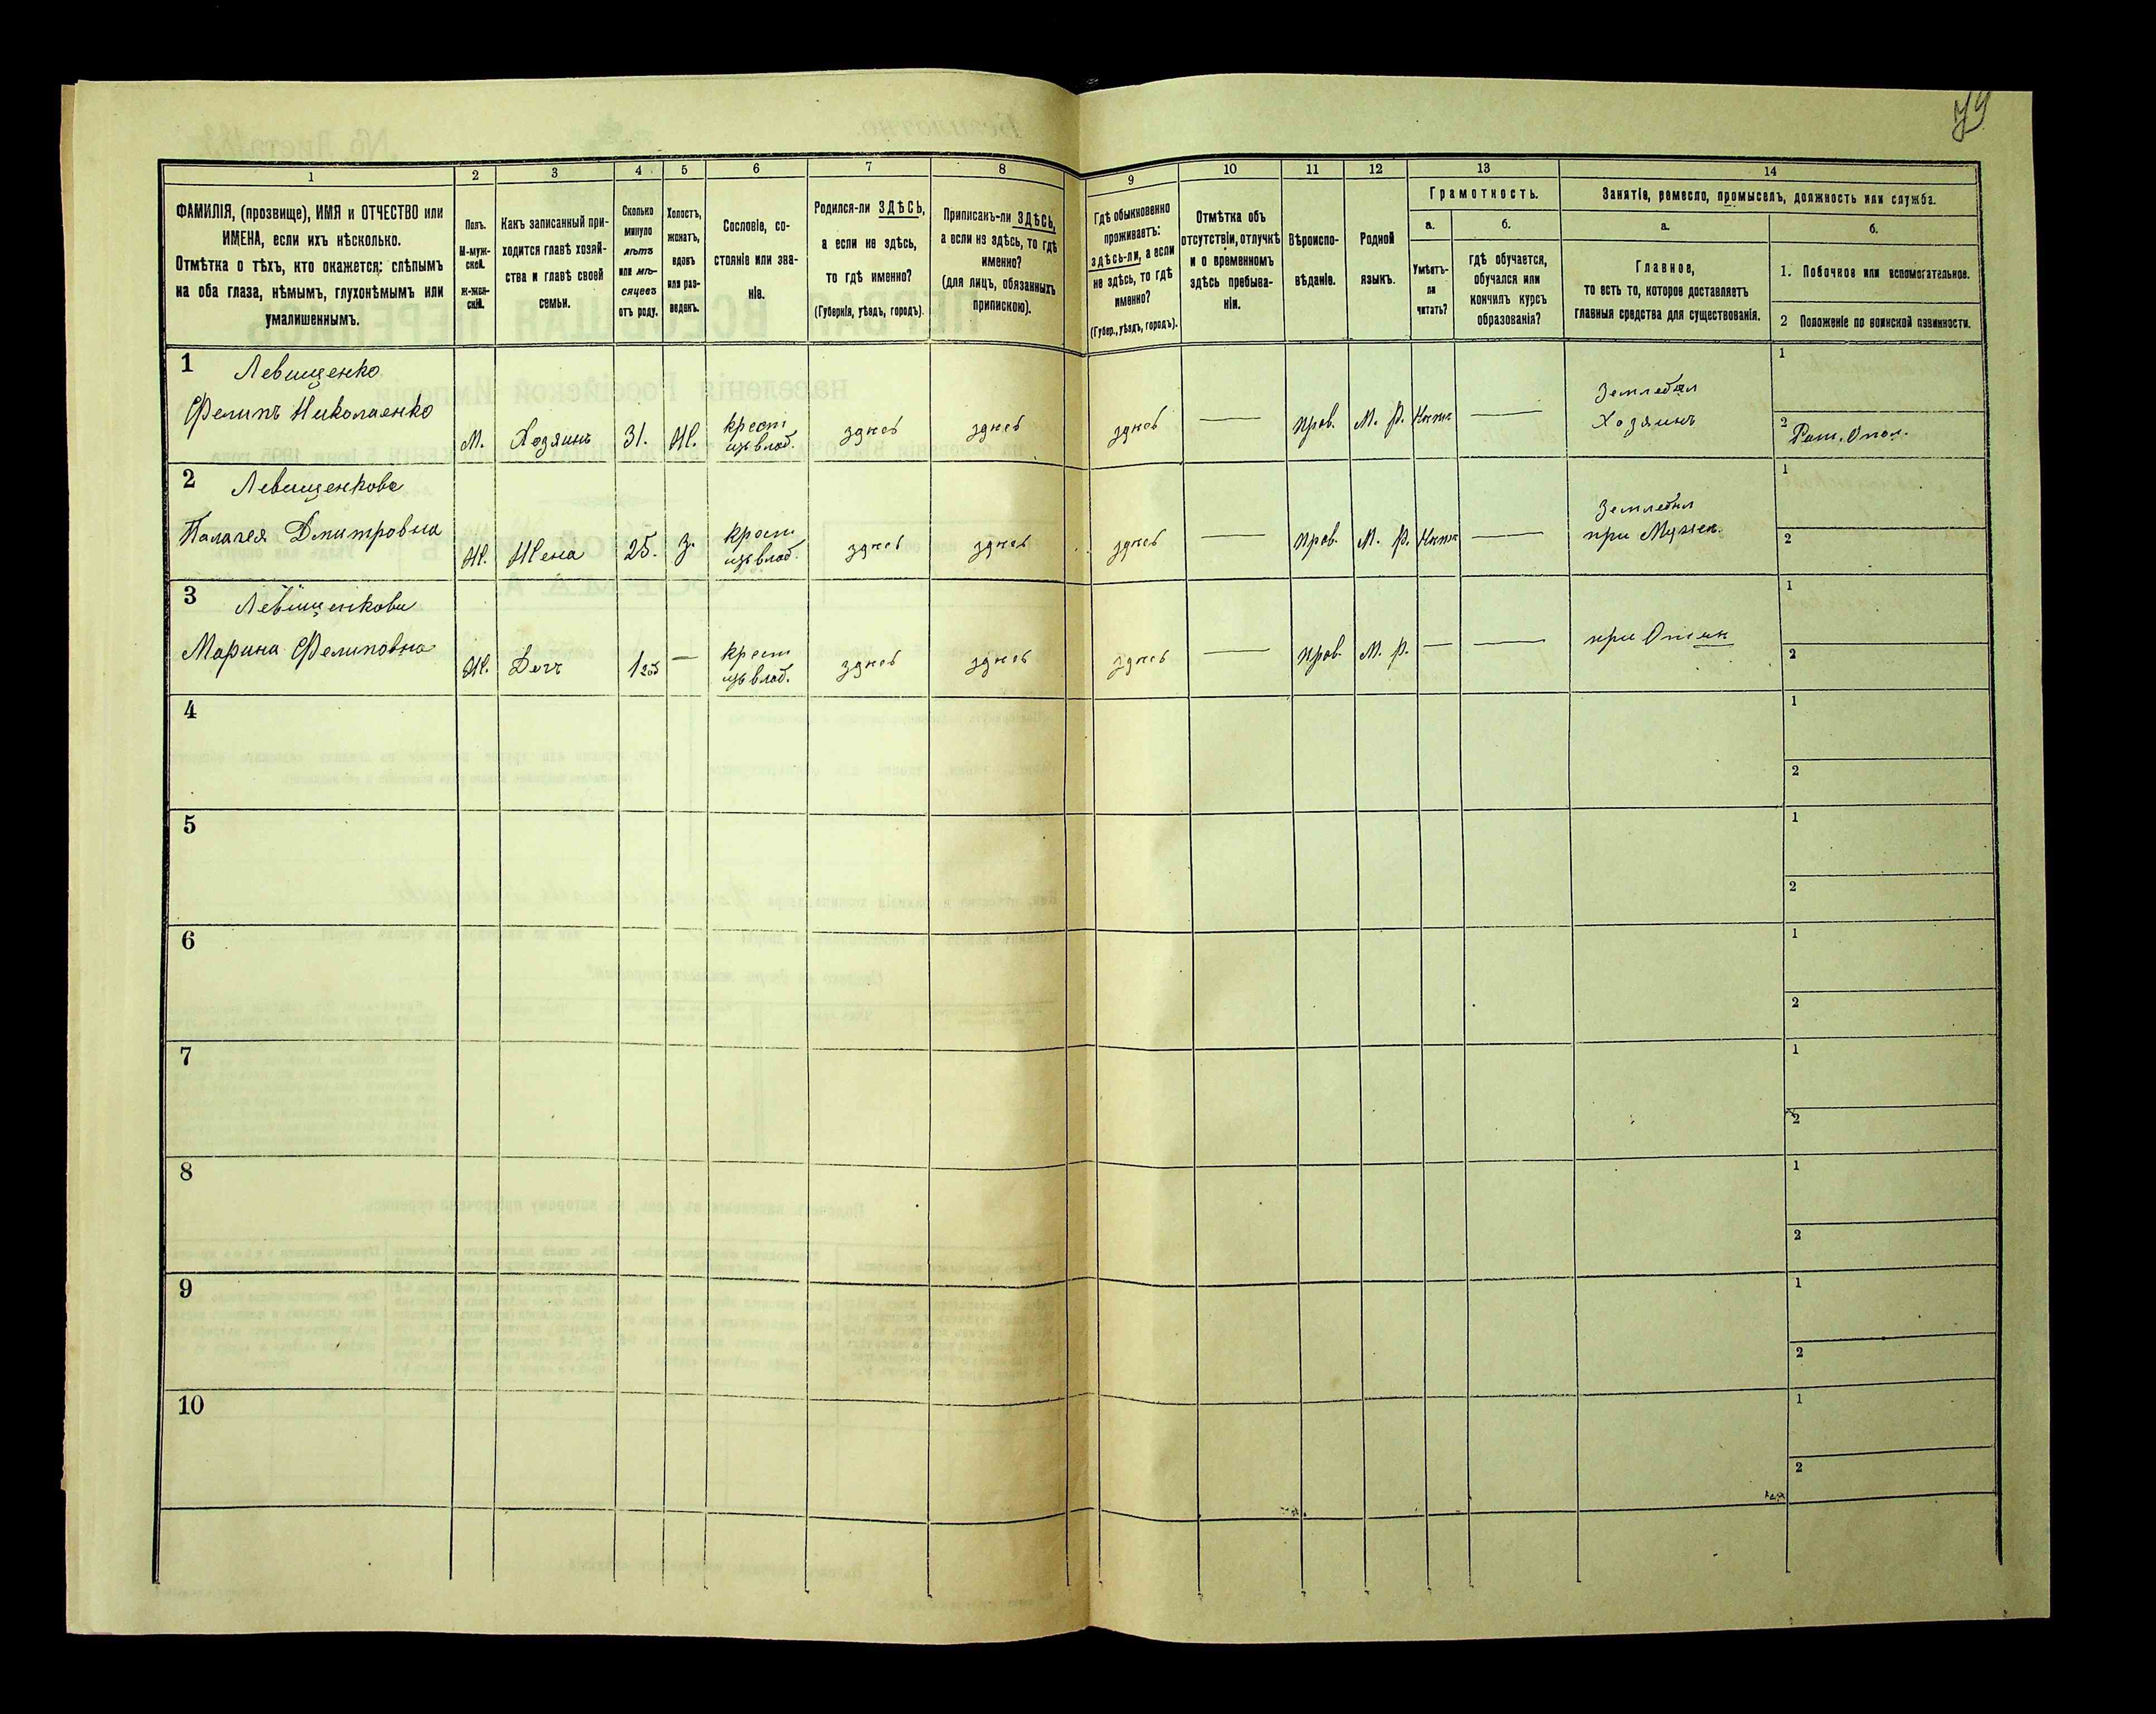 79
1
2
3
4
5
6
7
8
9
10
11
12
13
14
ФАМИЛІЯ, (прозвище), ИМЯ и ОТЧЕСТВО или
ИМЕНА, если ихъ нѣсколько.
Отмѣтка о тѣхъ, кто окажется: слѣпымъ
на оба глаза, нѣмымъ, глухонѣмымъ или
умалишеннымъ.
Полъ.
М-муж-
ской.
Ж-жен-
скій.
Какъ записанный при-
ходится главѣ хозяй-
ства и главѣ своей
семьи.
Сколько
минуло
лѣтъ
или мѣ-
сяцевъ
отъ роду.
Холостъ,
женатъ,
вдовъ
или раз-
веденъ.
Сословіе, со-
стояніе или зва-
ніе.
Родился-ли ЗДѢСЬ,
а если не здѣсь,
то гдѣ именно?
(Губернія, уѣздъ, городъ).
Приписанъ-ли ЗДѢСЬ,
а если не здѣсь, то гдѣ
именно?
(для лицъ, обязанныхъ
припискою).
Гдѣ обыкновенно
проживаетъ:
здѣсь-ли, а если
не здѣсь, то гдѣ
именно?
(Губер., уѣздъ, городъ).
Отмѣтка объ
отсутствіи, отлучкѣ
и о временномъ
здѣсь пребыва-
ніи.
Вѣроиспо-
вѣданіе.
Родной
языкъ.
Грамотность.
а.
б.
Умѣетъ-
ли
читать?
гдѣ обучается,
обучался или
кончилъ курсъ
образованія?
Занятіе, ремесло, промыселъ, должность или служба.
а.
б.
Главное,
то есть то, которое доставляетъ
главныя средства для существованія.
1. Побочное или вспомогательное.
2 Положеніе по воинской повинности.
1
Левищенко
Фелипъ Николаенко
М.
Хозяинъ
31.
Ж.
крест
изъ влад.
зднсь
зднсь
зднсь
—
прав.
М. Р.
—
Землебил
Хозяинъ
1
2
Рат. Опол.
2
Левищенкова
Палагея Дмитровна
Ж.
Жена
25.
З.
крест
изъ влад.
зднсь
зднсь
зднсь
—
прав.
М. Р.
—
Землебил
при Мужен.
1
2
3
Левищенкова
Марина Фелиповна
Ж.
Доч
1 год
—
крест
изъ влад.
зднсь
зднсь
зднсь
—
прав.
М. Р.
—
—
при
1
2
4
1
2
5
1
2
6
1
2
7
1
2
8
1
2
9
1
2
10
1
2